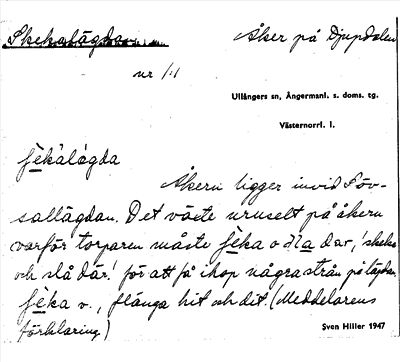 Skekalägda
Åker på Djupdalen
nr 1:1
Ullångers sn, Ångermanl. s. doms. tg.
Västernorrl. l.
ſèkàlägda
Åkern ligger invid Löv-
sallägdan. Det växte uruselt på åkern
varför torparen måste ſèka o dia dar, 'skeka
och slå där' för att få ihop några strån på lägdan.
ſèka v., flänga hit och dit. (Meddelarens
förklaring)
Sven Hiller 1947